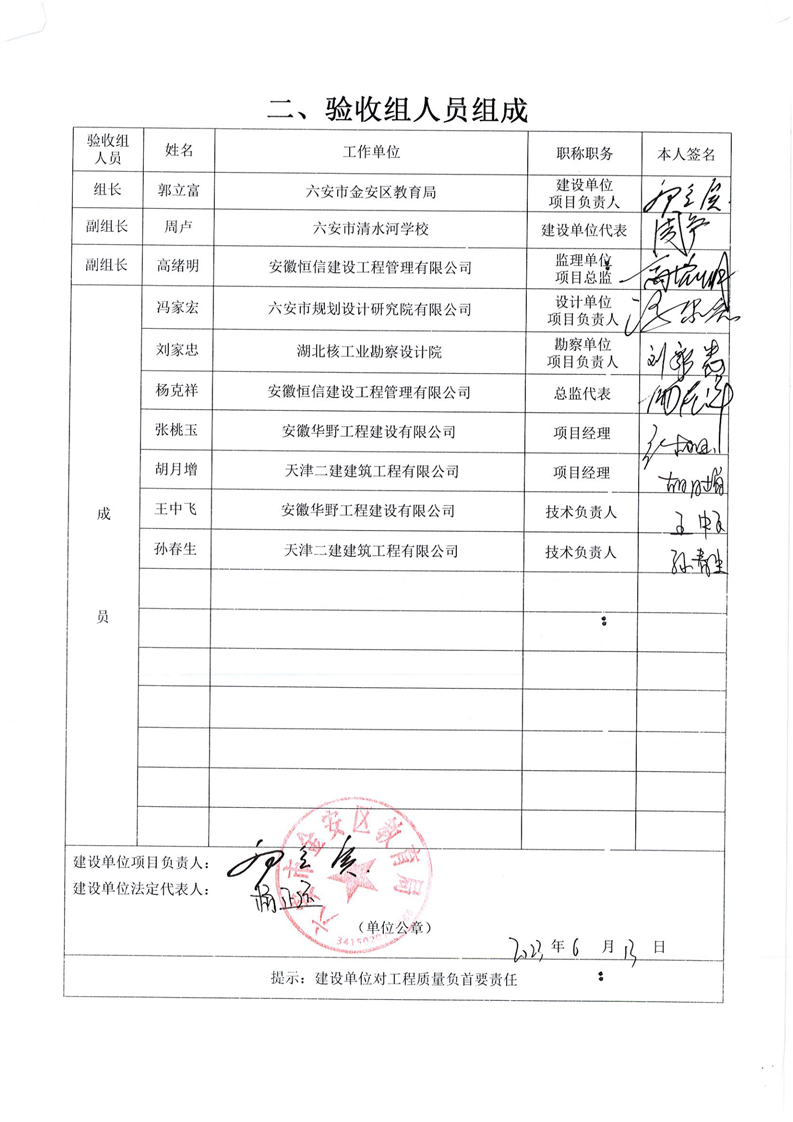 二、验收组人员组成
验收组人员 姓名 工作单位 职称职务 本人签名
组长 郭立富 六安市金安区教育局 建设单位项目负责人
副组长 周卢 六安市清水河学校 建设单位代表
副组长 高绪明 安徽恒信建设工程管理有限公司 监理单位项目总监
成员
冯家宏 六安市规划设计研究院有限公司 设计单位项目负责人
刘家忠 湖北核工业勘察设计院 勘察单位项目负责人 刘家忠
杨克祥 安徽恒信建设工程管理有限公司 总监代表
张桃玉 安徽华野工程建设有限公司 项目经理
胡月增 天津二建建筑工程有限公司 项目经理 胡月增
王中飞 安徽华野工程建设有限公司 技术负责人 王中飞
孙春生 天津二建建筑工程有限公司 技术负责人 孙春生
建设单位项目负责人：
建设单位法定代表人：
六安市金安区教育局
（单位公章）
2023年6月13日
提示：建设单位对工程质量负首要责任